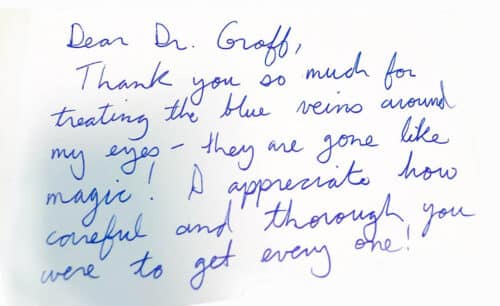 Dear Dr. Groff,
Thank you so much for
treating the blue veins around
my eyes – they are gone like
magic! I appreciate how
careful and thorough you
were to get every one!